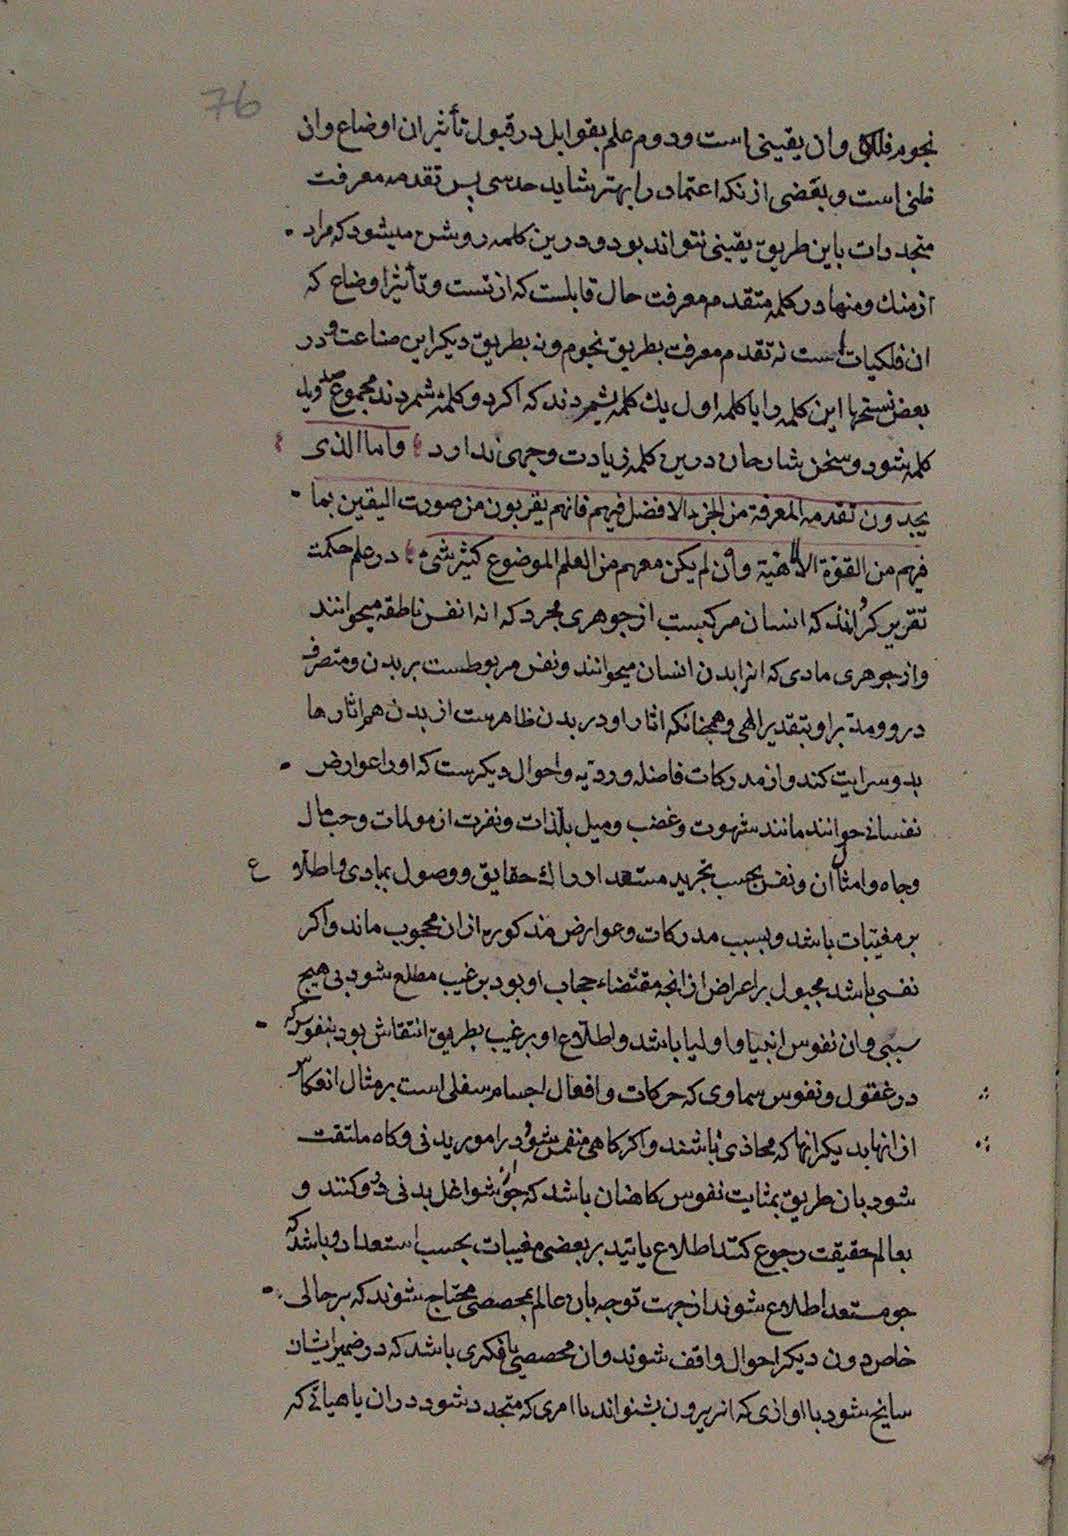 76
نجوم فلکی وان یقینی است ودوم علم بقوابل در قبول تأثیر ان اوضاع وان
ظنی است وبعضی ازنکه اعتماد را بهتر شاید حدسی پس تقدمه معرفت
متجددات باین طریق یقینی نتواند بود ودرین کلمه روشن میشود که مراد
از منك ومنها در کلمه متقدم معرفت حال قابلست که از تست وتأثیر اوضاع که
ان فلکیات است نه تقدم معرفت بطریق نجوم ونه بطریق دیکر این صناعت ودر
بعض نسختها این کلمه را با کلمه اول یك کلمه شمردند که اکر دو کلمه شمردند مجموع صد ویك
کلمه شود وسخن شارحان درین کلمه زیادت وجهی ندارد واما الذی
یجدون تقدمه المعرفة من الجزء الافضل فیهم فانهم یقربون من صورت الیقین بما
فیهم من القوة الالهیة وان لم یکن معهم من العلم الموضوع کثیر شیء در علم حکمت
تقریر کرده‌اند که انسان مرکبست از جوهری مجرد که انرا نفس ناطقه میخوانند
واز جوهری مادی که انرا بدن انسان میخوانند ونفس مربوطست بر بدن ومتصرف
درو ومدبر او بتقدیر الهی وهمچنانکه اثار او در بدن ظاهرست از بدن هم اثارها
بدو سرایت کند واز مدرکات فاضله وردیه واحوال دیکرست که اورا عوارض
نفسانی خوانند مانند شهوت وغضب ومیل بلذات ونفرت از مولمات وحب مال
وجاه وامثال ان ونفس بحسب تجرید مستعد ادراك حقایق ووصول بمبادی واطلاع
بر مغیبات باشد وبسبب مدرکات وعوارض مذکوره ازان محجوب ماند واکر
نفسی باشد مجبول بر اعراض از انچه مقتضاء حجاب او بود بر غیب مطلع شود بی هیچ
سببی وان نفوس انبیا واولیا باشد واطلاع او بر غیب بطریق انتقاش بود بنقوس که
در عقول ونفوس سماوی که حرکات وافعال اجسام سفلی است بر مثال انعکاس
از انها بدیکر انها که محاذی باشند واکر کاهی منغمس شود در امور بدنی وکاه ملتفت
شود بان طریق بمثابت نفوس کاهنان باشد که چون از شواغل بدنی دور کنند و
بعالم حقیقت رجوع کنند اطلاع یابند بر بعضی مغیبات بحسب استعداد وباشد که
چو مستعد اطلاع شوند از جهت توجه بان عالم بمخصصی محتاج شوند که بر حالی
خاص دون دیکر احوال واقف شوند وان مخصصی یا فکری باشد که در ضمیر ایشان
سانح شود یا اوازی که از بیرون بشنواند یا امری که متجدد شود دران یا هیأتی که